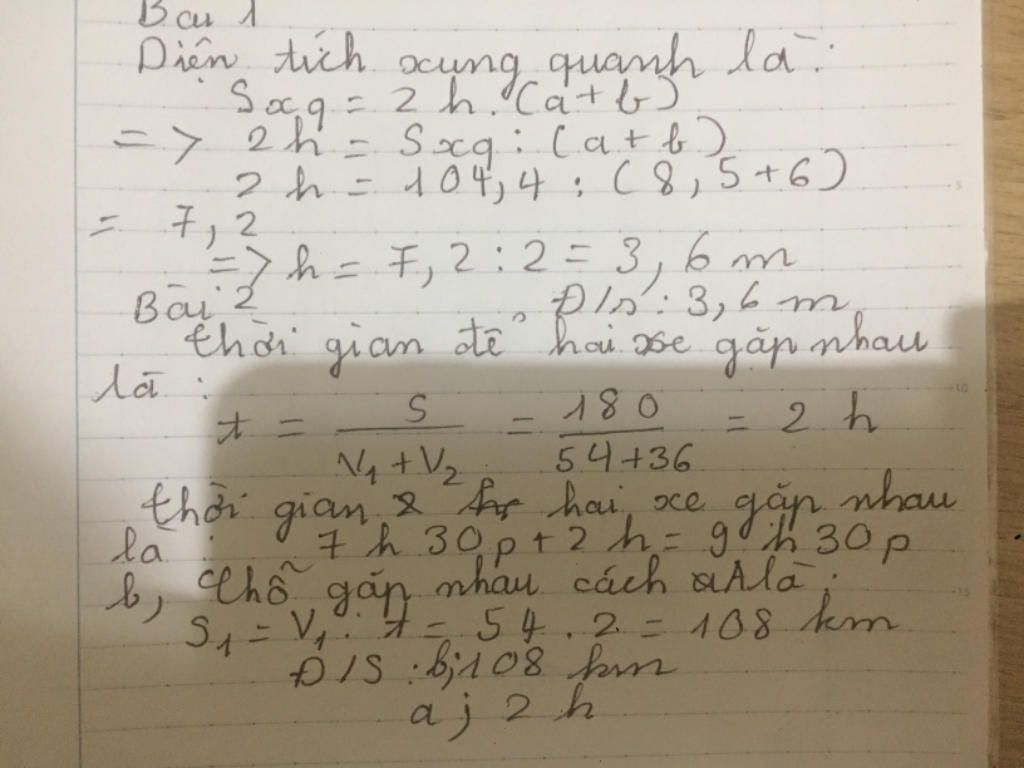 Bài 1
Diện tích xung quanh là:
Sxq = 2 h. (a+b)
=> 2 h = Sxq : (a+b)
2 h = 104,4 : (8,5+6)
= 7,2
=> h = 7,2 : 2 = 3,6 m
Đ/s : 3,6 m
Bài 2
thời gian để hai xe gặp nhau
là :
t = S / (V1 + V2) = 180 / (54+36) = 2 h
thời gian hai xe gặp nhau
là : 7 h 30p + 2 h = 9 h 30p
b, Chỗ gặp nhau cách A là:
S1 = V1. t = 54 . 2 = 108 km
Đ/S : b; 108 km
a; 2 h